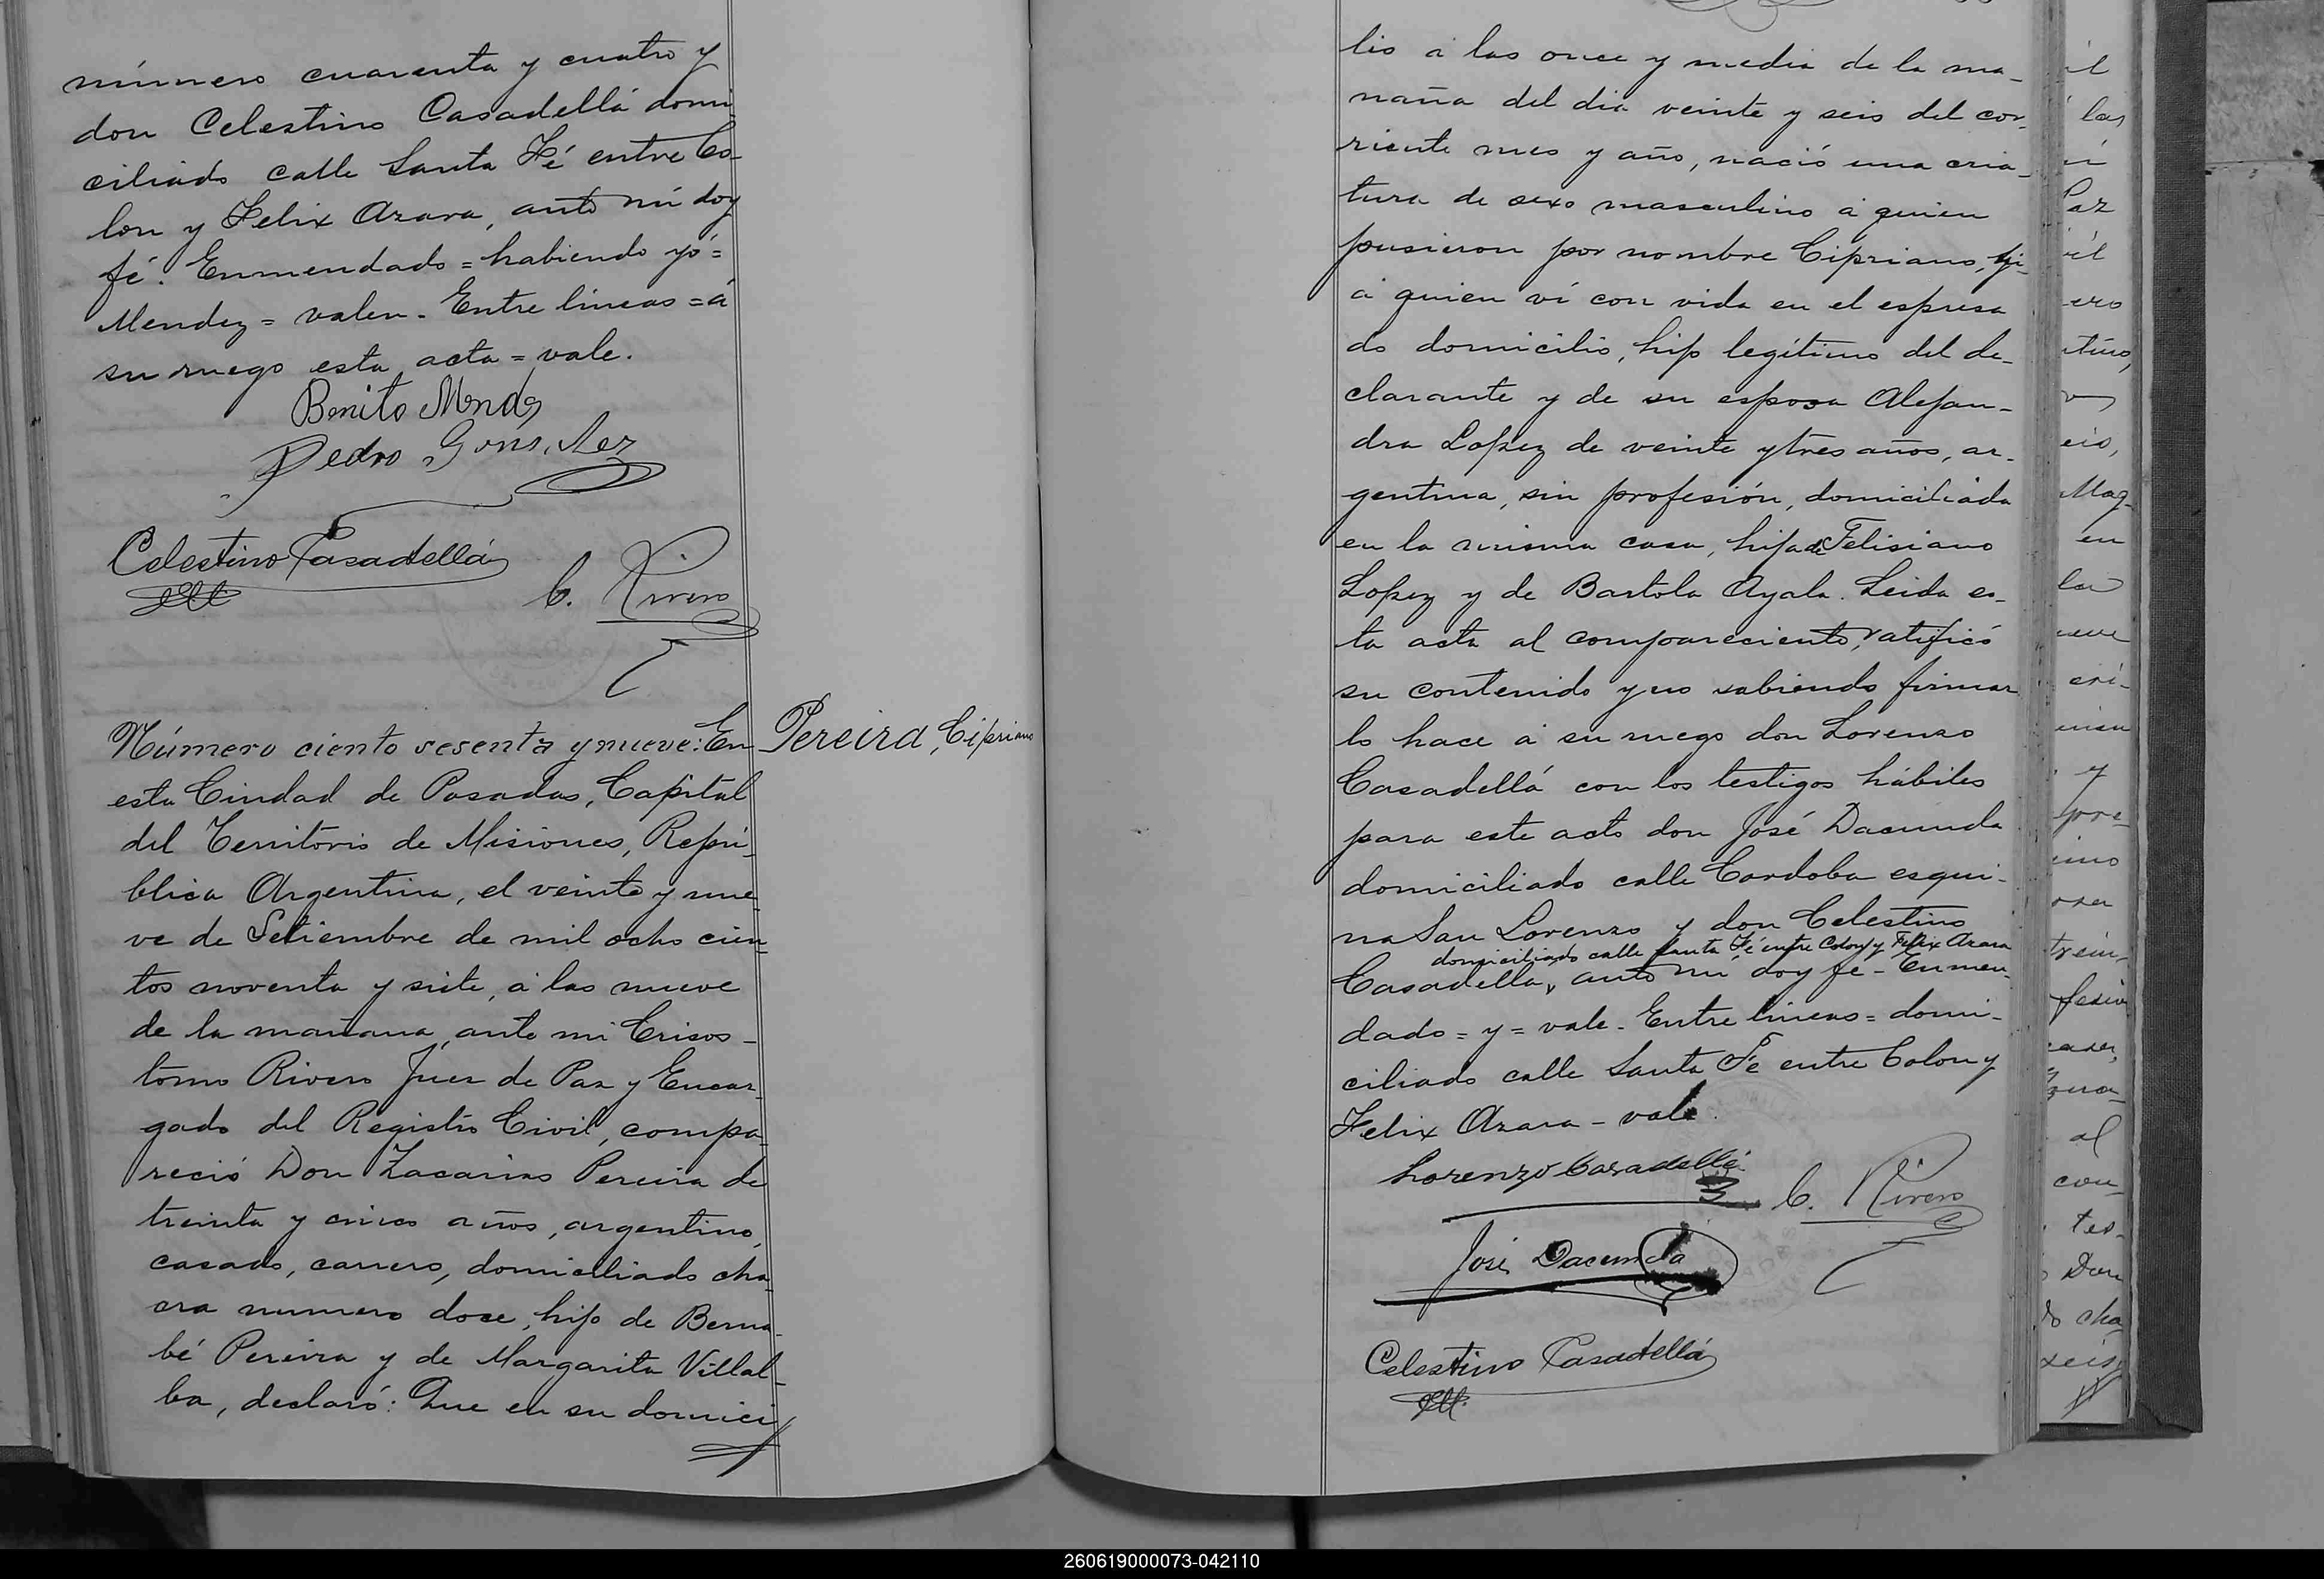 número cuarenta y cuatro y
don Celestino Casadellá domi
ciliado calle Santa Fé entre Co-
lon y Felix Azara, ante mí doy
fé. Enmendado = habiendo yó =
Mendez = valen. Entre líneas = á
su ruego esta acta = vale.
Benito Mendz
Pedro Gonzalez
Celestino Casadellá
C. Rivero
Número ciento sesenta y nueve: En
Pereira, Cipriano
esta Ciudad de Posadas, Capital
del Territorio de Misiones, Repú-
blica Argentina, el veinte y nue
ve de Setiembre de mil ocho cien
tos noventa y siete, á las nueve
de la mañana, ante mi Crisos-
tomo Rivero Juez de Paz y Encar-
gado del Registro Civil, compa-
reció Don Zacarias Pereira de
treinta y cinco años, argentino,
casado, carrero, domiciliado cha
cra numero doce, hijo de Berna-
bé Pereira y de Margarita Villal-
ba, declaró: Que en su domici
lio á las once y media de la ma-
ñana del dia veinte y seis del cor-
riente mes y año, nació una cria-
tura de sexo masculino á quien
pusieron por nombre Cipriano,
á quien ví con vida en el espresa
do domicilio, hijo legítimo del de-
clarante y de su esposa Alejan-
dra Lopez de veinte y tres años, ar-
gentina, sin profesión, domiciliada
en la misma casa, hija de Felisiano
Lopez y de Bartola Ayala. Leida es-
ta acta al compareciente, ratificó
su contenido y no sabiendo firmar
lo hace á su ruego don Lorenzo
Casadellá con los testigos hábiles
para este acto don José Dacunda
domiciliado calle Cordoba esqui-
na San Lorenzo y don Celestino
domiciliado calle Santa Fé entre Colon y Felix Azara
Casadella, ante mi doy fe - Enmen-
dado = y = vale. Entre líneas = domi-
ciliado calle Santa Fé entre Colon y
Felix Azara - vale.
Lorenzo Casadellá
C. Rivero
José Dacunda
Celestino Casadellá
260619000073-042110